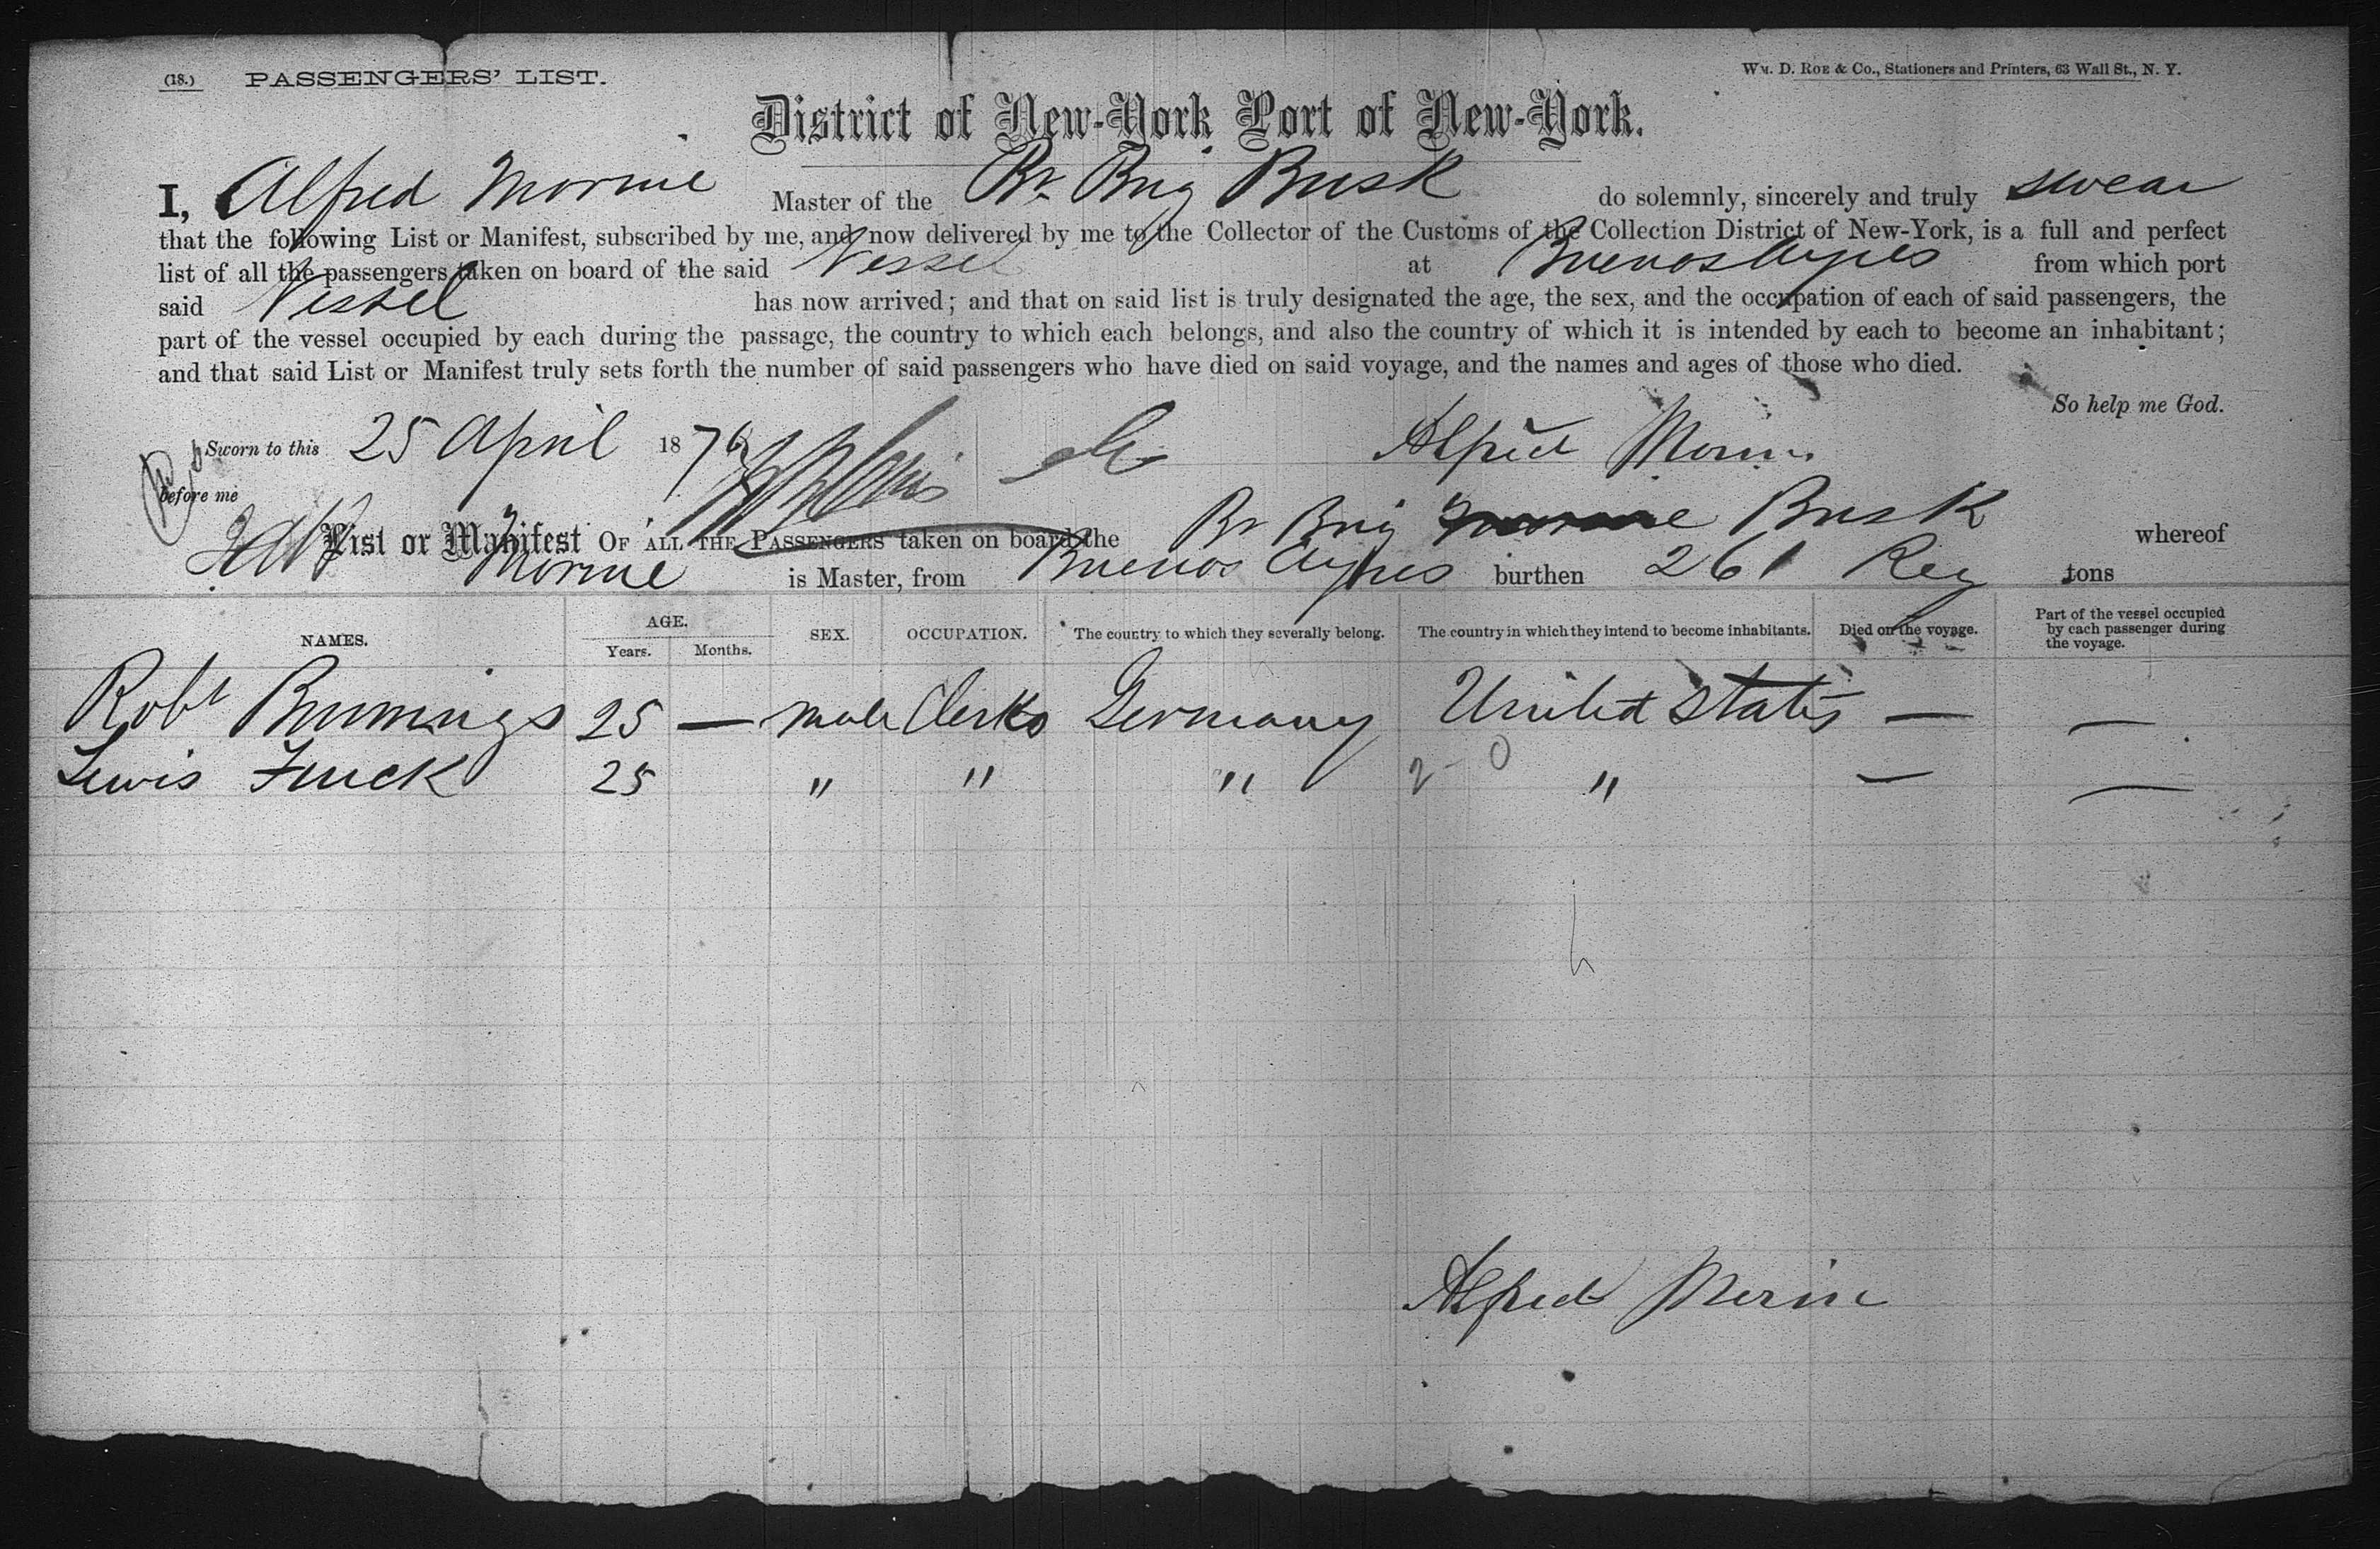 (18.) PASSENGERS' LIST. Wm. D. Roe & Co., Stationers and Printers, 63 Wall St., N. Y.
District of New-York Port of New-York.
I, Alfred Morine Master of the Br Brig Busk do solemnly, sincerely and truly swear
that the following List or Manifest, subscribed by me, and now delivered by me to the Collector of the Customs of the Collection District of New-York, is a full and perfect
list of all the passengers taken on board of the said Vessel at Buenos Ayres from which port
said Vessel has now arrived; and that on said list is truly designated the age, the sex, and the occupation of each of said passengers, the
part of the vessel occupied by each during the passage, the country to which each belongs, and also the country of which it is intended by each to become an inhabitant;
and that said List or Manifest truly sets forth the number of said passengers who have died on said voyage, and the names and ages of those who died.
So help me God.
Sworn to this 25 April 1876 Alfred Morine
before me
List or Manifest OF ALL THE PASSENGERS taken on board the Br Brig Busk whereof
Morine is Master, from Buenos Ayres burthen 261 Reg tons
NAMES. AGE. Years. Months. SEX. OCCUPATION. The country to which they severally belong. The country in which they intend to become inhabitants. Died on the voyage. Part of the vessel occupied by each passenger during the voyage.
Robt Brunnings 25 — male Clerks Germany United States — —
Lewis Funck 25 " " " 2-0 " — —
Alfred Morine